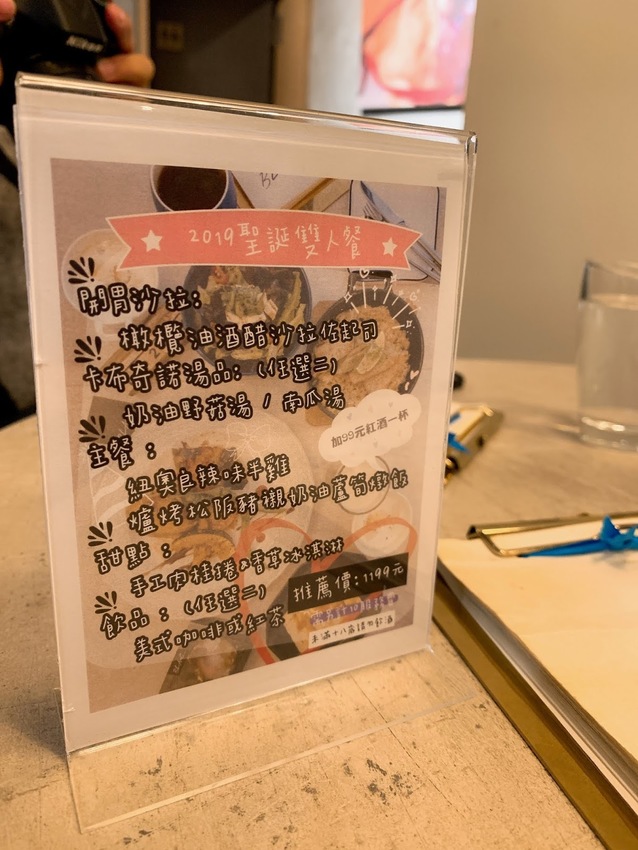 Nikon
2019聖誕雙人餐
開胃沙拉:
橄欖油酒醋沙拉佐起司
卡布奇諾湯品:(任選二)
奶油野菇湯 / 南瓜湯
加99元紅酒一杯
主餐:
紐奧良辣味半雞
爐烤松阪豬襯奶油蘆筍燉飯
甜點:
手工肉桂捲&香草冰淇淋
推薦價:1199元
飲品:(任選二)
美式咖啡或紅茶
未滿十八歲請勿飲酒